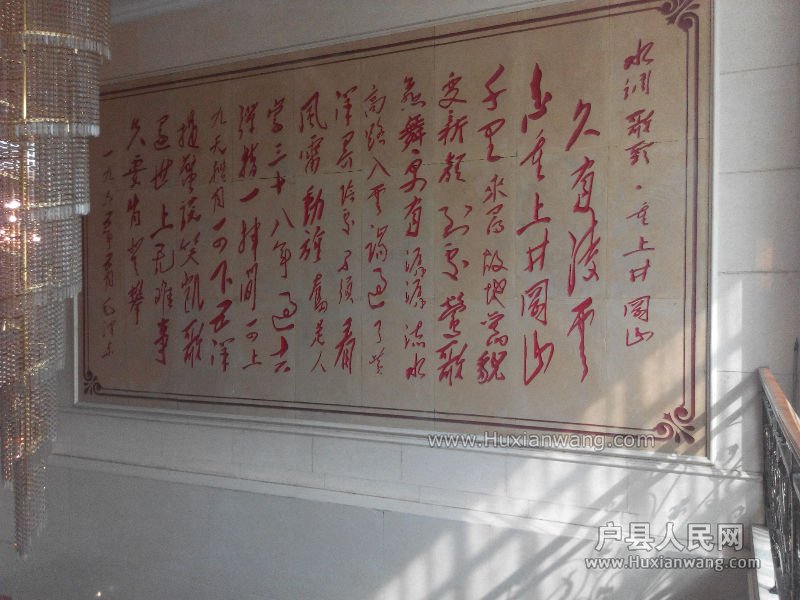 水调歌头·重上井冈山
久有凌云
志重上井冈山
千里来寻故地旧貌
变新颜到处莺歌
燕舞更有潺潺流水
高路入云端过了黄
洋界险处不须看
风雷动旌旗奋是人
寰三十八年过去
弹指一挥间可上
九天揽月可下五洋
捉鳖谈笑凯歌
还世上无难事
只要肯登攀
一九六五年五月 毛泽东
www.Huxianwang.com
户县人民网
www.Huxianwang.com